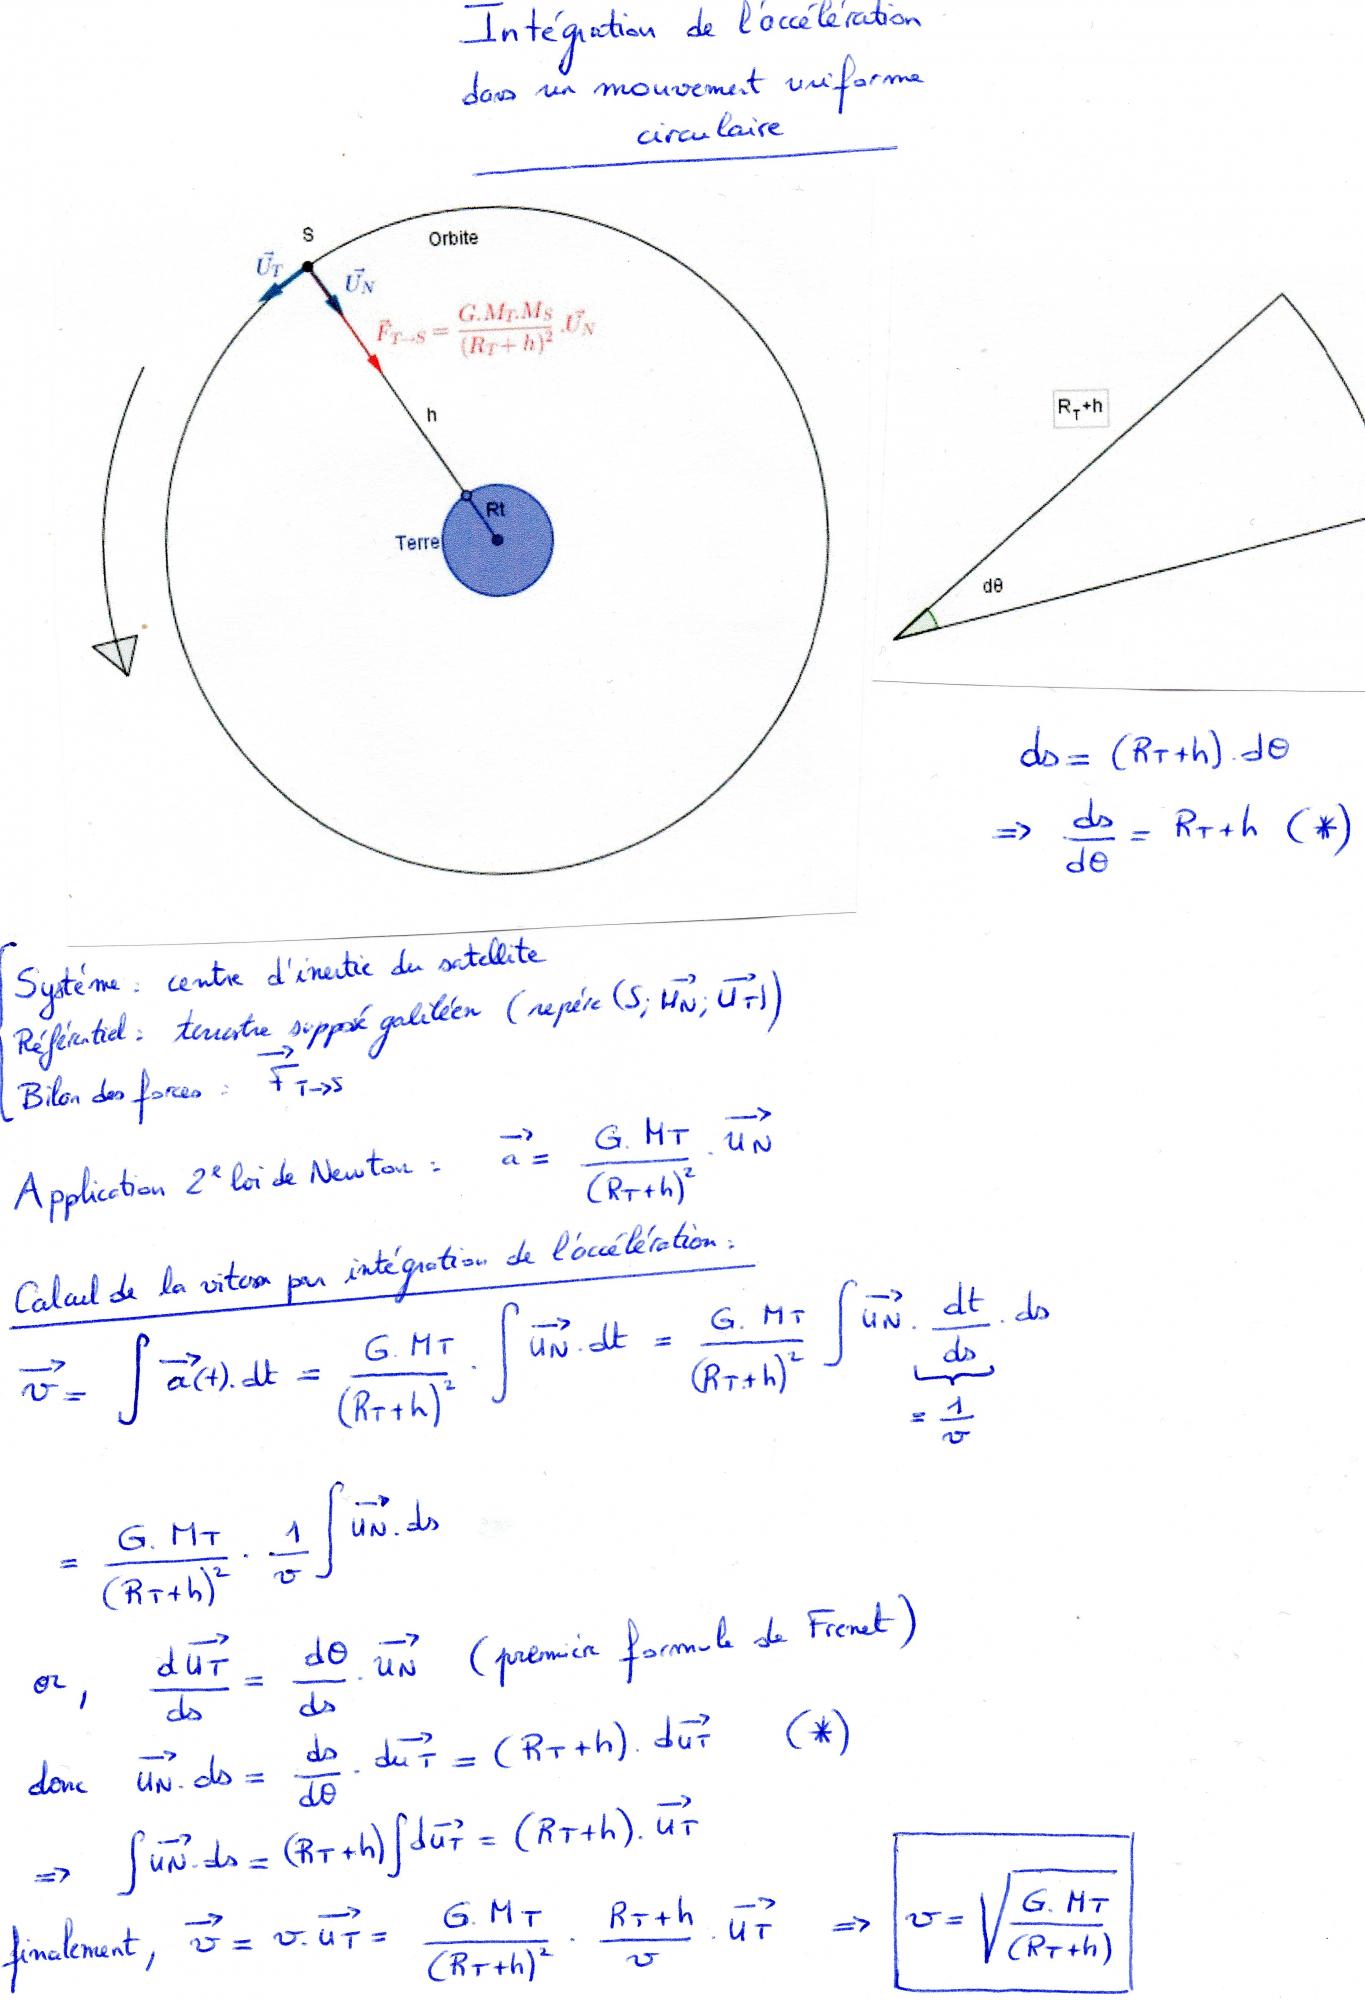 Intégration de l'accélération
dans un mouvement uniforme
circulaire
S
Orbite
\vec{U_T}
\vec{U_N}
\vec{F}_{T→S} = \frac{G.M_T.M_S}{(R_T+h)^2}.\vec{U_N}
h
Rt
Terre
R_T+h
dθ
ds = (R_T+h).dθ
=> \frac{ds}{dθ} = R_T+h (*)
Système : centre d'inertie du satellite
Référentiel : terrestre supposé galiléen (repère (S; \vec{u_N}; \vec{u_T}))
Bilan des forces : \vec{F}_{T→S}
Application 2e loi de Newton : \vec{a} = \frac{G.M_T}{(R_T+h)^2}.\vec{u_N}
Calcul de la vitesse par intégration de l'accélération :
\vec{v} = ∫\vec{a}(t).dt = \frac{G.M_T}{(R_T+h)^2}.∫\vec{u_N}.dt = \frac{G.M_T}{(R_T+h)^2}∫\vec{u_N}.\frac{dt}{ds}.ds
= \frac{1}{v}
= \frac{G.M_T}{(R_T+h)^2}.\frac{1}{v}∫\vec{u_N}.ds
or, \frac{d\vec{u_T}}{ds} = \frac{dθ}{ds}.\vec{u_N} (première formule de Frenet)
donc \vec{u_N}.ds = \frac{ds}{dθ}.d\vec{u_T} = (R_T+h).d\vec{u_T} (*)
=> ∫\vec{u_N}.ds = (R_T+h)∫d\vec{u_T} = (R_T+h).\vec{u_T}
finalement, \vec{v} = v.\vec{u_T} = \frac{G.M_T}{(R_T+h)^2}.\frac{R_T+h}{v}.\vec{u_T} => v = \sqrt{\frac{G.M_T}{(R_T+h)}}